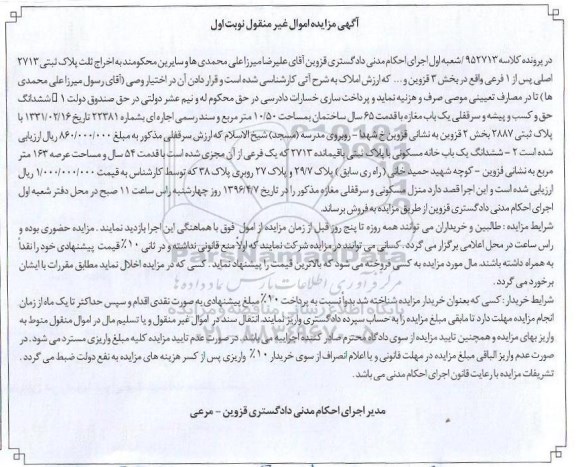 آگهی مزایده اموال غیر منقول نوبت اول
در پرونده کلاسه ۹۵۲۷۱۳ /شعبه اول اجرای احکام مدنی دادگستری قزوین آقای علیرضا میرزا علی محمدی ها و سایرین محکومند به اخراج ثلث پلاک ثبتی ۲۷۱۳
اصلی پس از ۱ فرعی واقع در بخش ۳ قزوین و... که ارزش املاک به شرح آتی کارشناسی شده است و قرار دادن آن در اختیار وصی (آقای رسول میرزا علی محمدی
ها) تا در مصارف تعیینی موصی صرف و هزینه نماید و پرداخت سازی خسارات دادرسی در حق محکوم له و نیم عشر دولتی در حق صندوق دولت ۱ ششدانگ
حق و کسب و پیشه و سرقفلی یک باب مغازه با قدمت ۶۵ سال ساختمان بمساحت ۱۰/۵۰ متر مربع و سند رسمی اجاره ای بشماره ۲۲۳۸۱ تاریخ ۱۳۳۱/۰۲/۱۶ با
پلاک ثبتی ۲۸۸۷ بخش ۲ قزوین به نشانی قزوین خ شهدا - روبروی مدرسه (مسجد) شیخ الاسلام که ارزش سرقفلی مذکور به مبلغ ۸۶۰/۰۰۰/۰۰۰ ریال ارزیابی
شده است ۲ - ششدانگ یک باب خانه مسکونی با پلاک ثبتی باقیمانده ۲۷۱۳ که یک فرعی از آن مجزی شده است با قدمت ۵۴ سال و مساحت عرصه ۱۶۳ متر
مربع به نشانی قزوین - کوچه شهید حمید خانی (راه ری سابق) پلاک ۲۹/۷ و پلاک ۲۷ روبری پلاک ۳۸ که توسط کارشناس به قیمت ۱/۰۰۰/۰۰۰/۰۰۰ ریال
ارزیابی شده است و این اجرا قصد دارد منزل مسکونی و سرقفلی مغازه مذکور را در تاریخ ۱۳۹۶/۴/۷ روز چهارشنبه راس ساعت ۱۱ صبح در محل دفتر شعبه اول
اجرای احکام مدنی دادگستری قزوین از طریق مزایده به فروش برساند.
شرایط مزایده : طالبین و خریداران می توانند همه روزه تا پنج روز قبل از زمان مزایده از اموال فوق با هماهنگی این اجرا بازدید نمایند . مزایده حضوری بوده و
راس ساعت در محل اعلامی برگزار می گردد . کسانی می توانند در مزایده شرکت نمایند که اولا منع قانونی نداشته و در ثانی ۱۰٪ قیمت پیشنهادی خود را نقداً
به همراه داشته باشند. مال مورد مزایده به کسی فروخته می شود که بالاترین قیمت را پیشنهاد نماید . کسی که در مزایده اخلال نماید مطابق مقررات با ایشان
برخورد می گردد .
شرایط خریدار : کسی که بعنوان خریدار مزایده شناخته شد بدواً نسبت به پرداخت ۲۰٪ مبلغ پیشنهادی به صورت نقدی اقدام و سپس حداکثر تا یک ماه از زمان
انجام مزایده مهلت دارد تا مابقی مبلغ مزایده را به حساب سپرده دادگستری واریز نمایند. انتقال سند در اموال غیر منقول و یا تسلیم مال در اموال منقول منوط به
واریز بهای مزایده و همچنین تایید مزایده از سوی دادگاه محترم صادر کننده اجراییه می باشد. در صورت عدم تایید مزایده کلیه مبلغ واریزی مسترد می شود . در
صورت عدم واریز الباقی مبلغ مزایده در مهلت قانونی و یا اعلام انصراف از سوی خریدار ۱۰٪ واریزی پس از کسر هزینه های مزایده به نفع دولت ضبط می گردد .
تشریفات مزایده با رعایت قانون اجرای احکام مدنی می باشد.
مدیر اجرای احکام مدنی دادگستری قزوین - مرعی